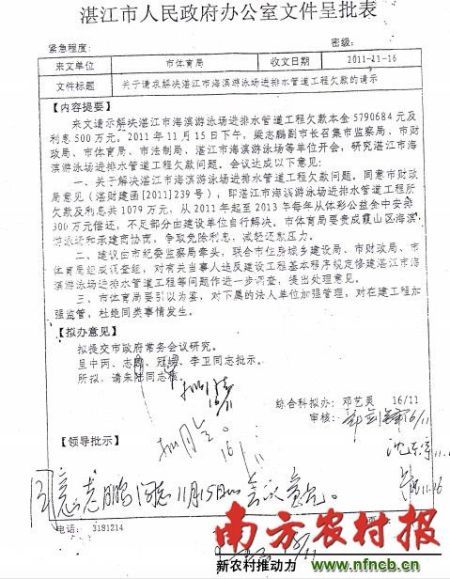 湛江市人民政府办公室文件呈批表
紧急程度: 密级:
来文单位 市体育局 收文日期 2011-11-16
文件标题 关于请求解决湛江市海滨游泳场进排水管道工程欠款的请示
【内容提要】
来文请示解决湛江市海滨游泳场进排水管道工程欠款本金 5790684 元及
利息 500 万元。2011 年 11 月 15 日下午，梁志鹏副市长召集市监察局、市财
政局、市体育局、市法制局、湛江市海滨游泳场等单位开会，研究湛江市海
滨游泳场进排水管道工程欠款问题。会议达成以下意见：
一、关于解决湛江市海滨游泳场进排水管道工程欠款问题。同意市财政
局意见（湛财建函[2011]239 号），即湛江市海滨游泳场进排水管道工程所
欠款及利息共 1079 万元，从 2011 年起至 2013 年每年从体彩公益金中安排
300 万元偿还，不足部分由建设单位自行解决。市体育局要责成霞山区海滨
游泳场和承建商协商，争取免除利息，减轻还款压力。
二、建议由市纪委监察局牵头，联合市住房城乡建设局、市财政局、市
体育局组成调查组，对有关当事人违反建设工程基本程序规定修建湛江市海
滨游泳场进排水管道工程等问题作进一步调查，提出处理意见。
三、市体育局要引以为鉴，对下属的法人单位加强管理，对在建工程加
强监管，杜绝同类事情发生。
【拟办意见】
拟提交市政府常务会议研究。
呈中丙、志鹏、
李卫同志批示。
所拟，请朱陆同志
综合科拟办：邓艺贵 16/11
审核： 16/11
【领导批示】
16/11
同意志鹏同志11月15日 会议意见。
电话: 3181214
南方农村报
新农村推动力 www.nfncb.cn